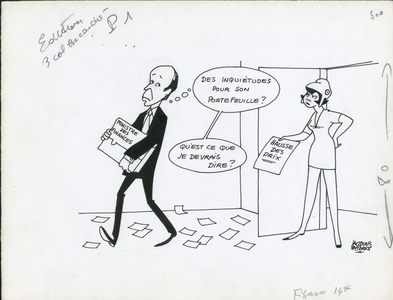 Edition
3 col encadré
P1
500
DES INQUIÉTUDES
POUR SON
PORTEFEUILLE ?
QU'EST CE QUE
JE DEVRAIS
DIRE ?
MINISTRE
DES
FINANCES
HAUSSE
DES
PRIX
80
JACQUES
FAIZANT
Figaro